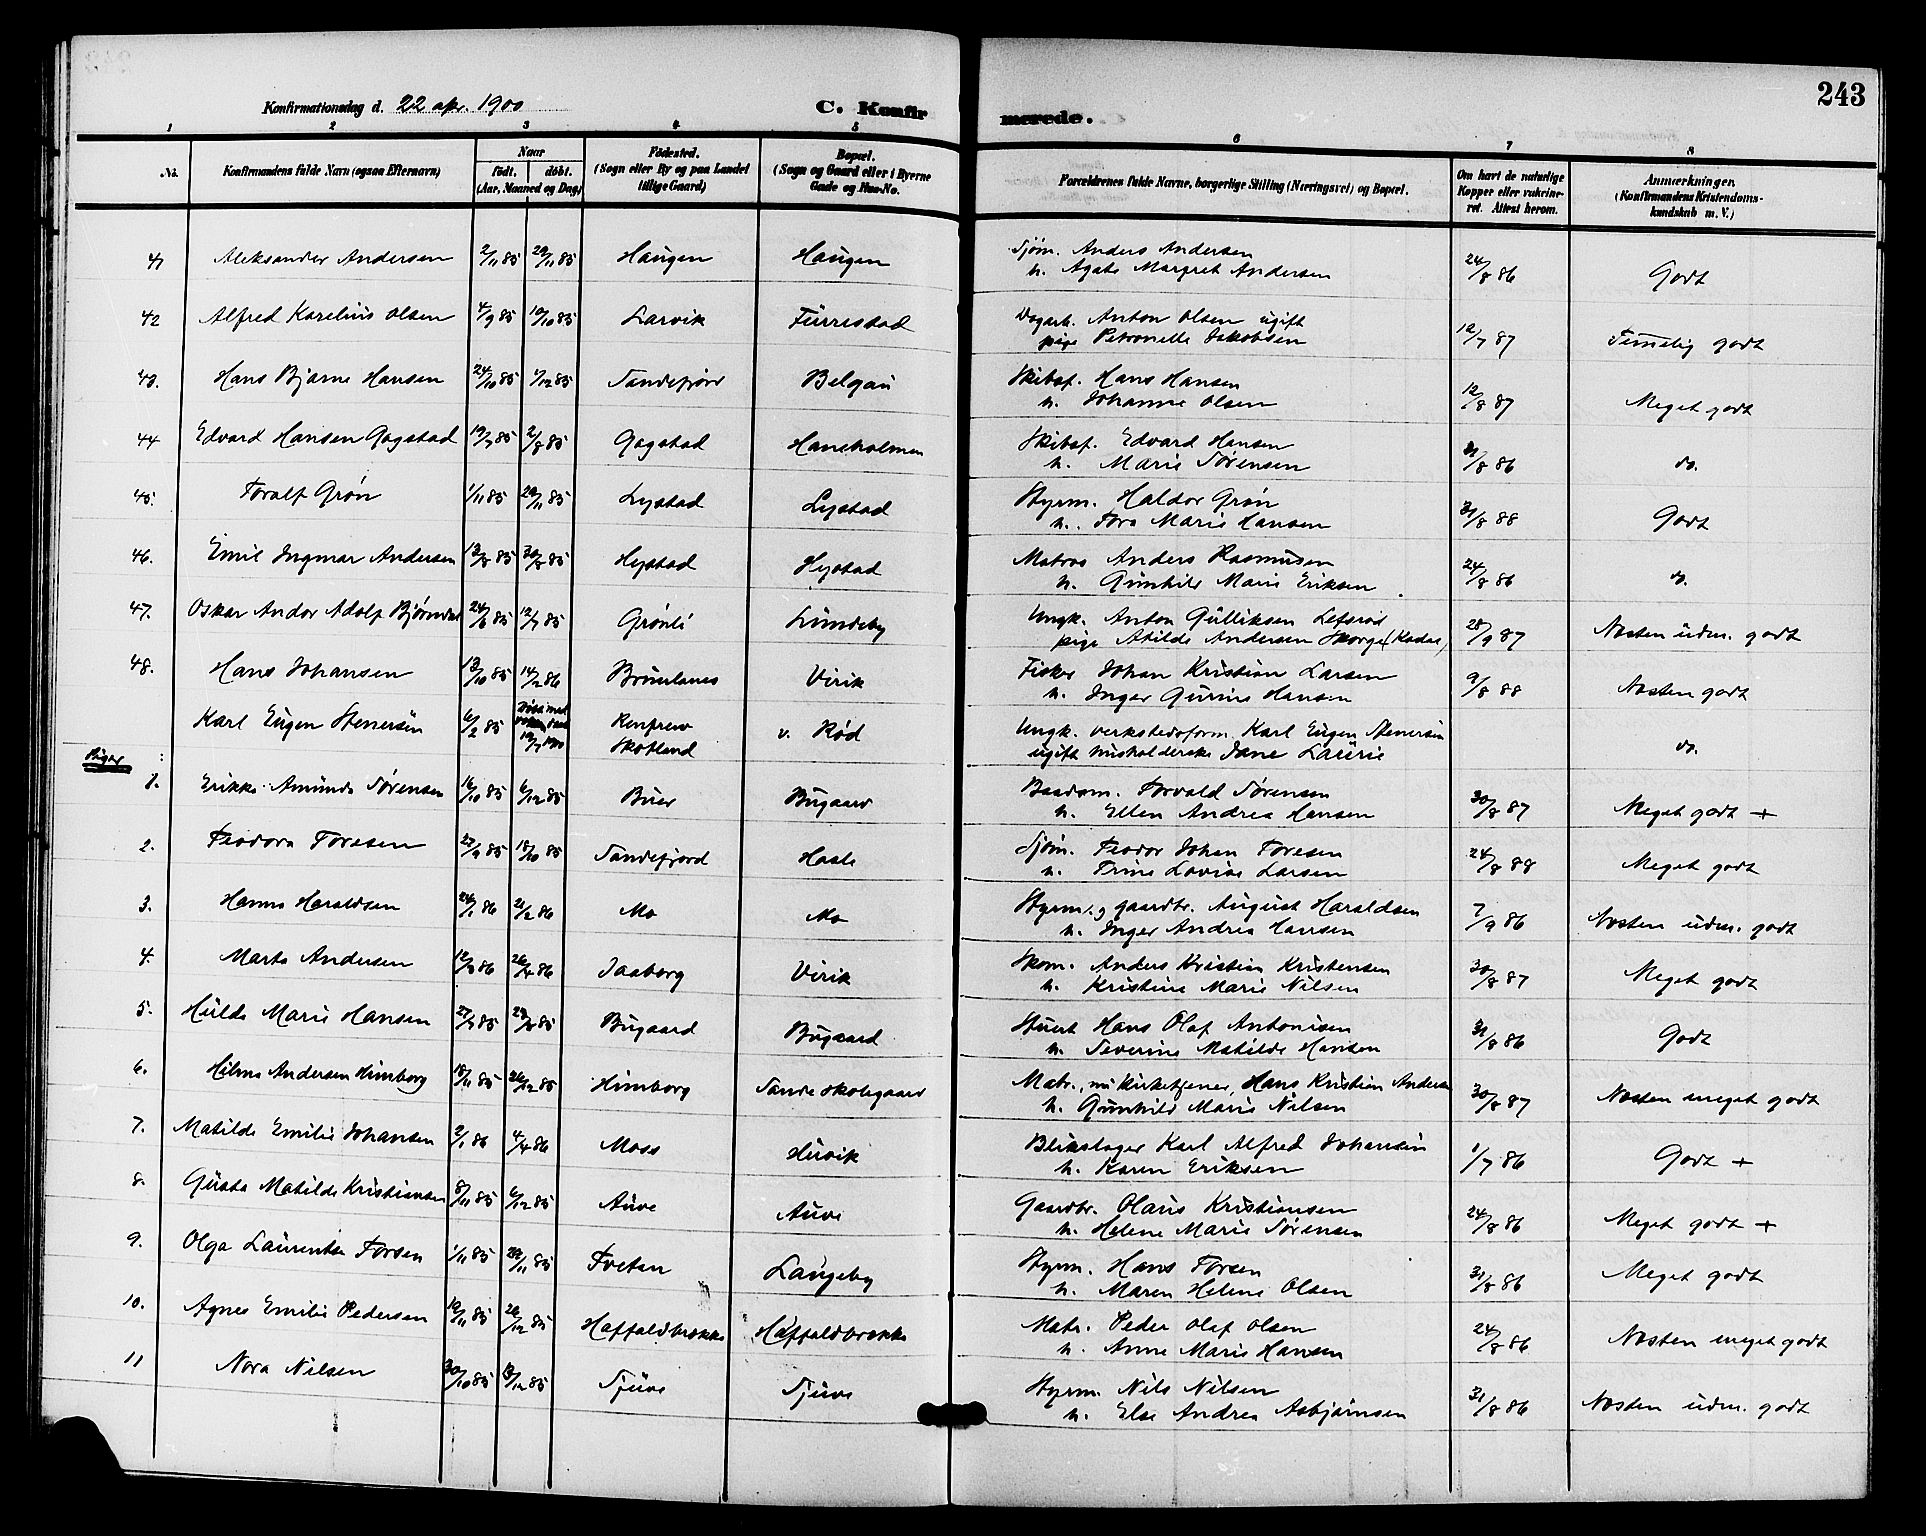 243
Konfirmationsdag d. 22 apr. 1900
C. Konfirmerede.
1 2 3 4 5 6 7 8
No.
Konfirmandens fulde Navn (ogsaa Efternavn)
Naar
födt. döbt.
(Aar, Maaned og Dag)
Födested.
(Sogn eller By og paa Landet
tillige Gaard)
Bopæl.
(Sogn og Gaard eller i Byerne
Gade og Hus-No.
Forældrenes fulde Navne, borgerlige Stilling (Næringsvei) og Bopæl.
Om havt de naturlige
Kopper eller vakcine-
ret. Attest herom.
Anmærkninger.
(Konfirmandens Kristendoms-
kundskab m. V.)
41 Aleksander Andersen 2/11 85 29/11 85 Haugen Haugen Sjøm. Anders Andersen 24/8 86 Godt
h. Agate Margret Andersen
42 Alfred Karelius Olsen 4/9 85 10/10 85 Larvik Furrestad Dagarb. Anton Olsen ugift 12/7 87 Temmelig godt
pige Petronelle Jakobsen
43. Hans Bjarne Hansen 24/10 85 /12 85 Sandefjord Belgau Skibsf. Hans Hansen 12/8 87 Meget godt
h. Johanne Olsen
44 Edvard Hansen Gogstad 19/7 85 2/8 85 Gogstad Haneholmen Skibsf. Edvard Hansen 31/8 86 do.
h. Marie Sørensen
45. Toralf Grøn 1/11 85 29/11 85 Lystad Lystad Styrm. Haldor Grøn 31/8 88 Godt
h. Tora Marie Hansen
46. Emil Ingmar Andersen 13/8 85 30/8 85 Hystad Hystad Matros Anders Rasmusen 24/8 86 do.
h. Gunhild Marie Eriksen
47. Oskar Andor Adolf Bjørndal 24/6 85 12/7 85 Grønli Lundeby Ungk. Anton Gulliksen Lefsrød 28/9 87 Næsten udm. godt
pige Atilde Andersen Skorge
48. Hans Johansen 13/10 85 14/2 86 Brunlanes Virik Fisker Johan Kristian Larsen 9/8 88 Næsten godt
h. Inger Gurine Hansen
Karl Eugen Stenersen 6/2 85 Renfrew v. Rød Ungk. verkstedsform. Karl Eugen Stenersen do.
Skotland ugift husholderske Jane Laurie
Piger:
1. Erikka Amunda Sørensen 16/10 85 6/12 85 Buer Bugaard Baadsm. Torvald Sørensen 30/8 87 Meget godt +
h. Ellen Andrea Hansen
2. Teodora Toresen 22/9 85 18/10 85 Sandefjord Hasle Sjøm. Teodor Johan Toresen 24/8 88 Meget godt
h. Trine Lovise Larsen
3. Hanna Haraldsen 24/1 86 21/2 86 Mo Mo Styrm. og gaardbr. August Haraldsen 7/9 86 Næsten udm. godt
h. Inger Andrea Hansen
4. Marta Andersen 12/3 86 26/4 86 Jaaborg Virik Skom. Anders Kristian Kristensen 30/8 87 Meget godt
h. Kristine Marie Nilsen
5. Hulda Marie Hansen 27/7 85 23/8 85 Bugaard Bugaard Stuert Hans Olaf Antonisen 31/8 86 Godt
h. Severine Matilde Hansen
6. Hilma Andersen Himborg 18/11 85 26/12 85 Himborg Sande skolegaard Matr., nu kirketjener, Hans Kristian Andersen 30/8 87 Næsten meget godt
h. Gunhild Marie Nilsen
7. Matilde Emilie Johansen 2/1 86 4/4 86 Moss Huvik Blikslager Karl Alfred Johansen 1/7 86 Godt +
h. Karen Eriksen
8. Gusta Matilde Kristiansen 8/11 85 6/12 85 Auve Auve Gaardbr. Olaus Kristiansen 24/8 86 Meget godt +
h. Helene Marie Sørensen
9. Olga Laurentse Torsen 1/11 85 29/11 85 Tveten Langeby Styrm. Hans Torsen 31/8 86 Meget godt
h. Maren Helene Olsen
10. Agnes Emilie Pedersen 19/11 85 26/12 85 Haffaldbrække Haffaldbrække Matr. Peder Olaf Olsen 24/8 86 Næsten meget godt
h. Anne Marie Hansen
11 Nora Nilsen 30/10 85 13/12 85 Sjuve Sjuve Styrm. Nils Nilsen 31/8 86 Næsten udm. godt
h. Else Andrea Asbjørnsen